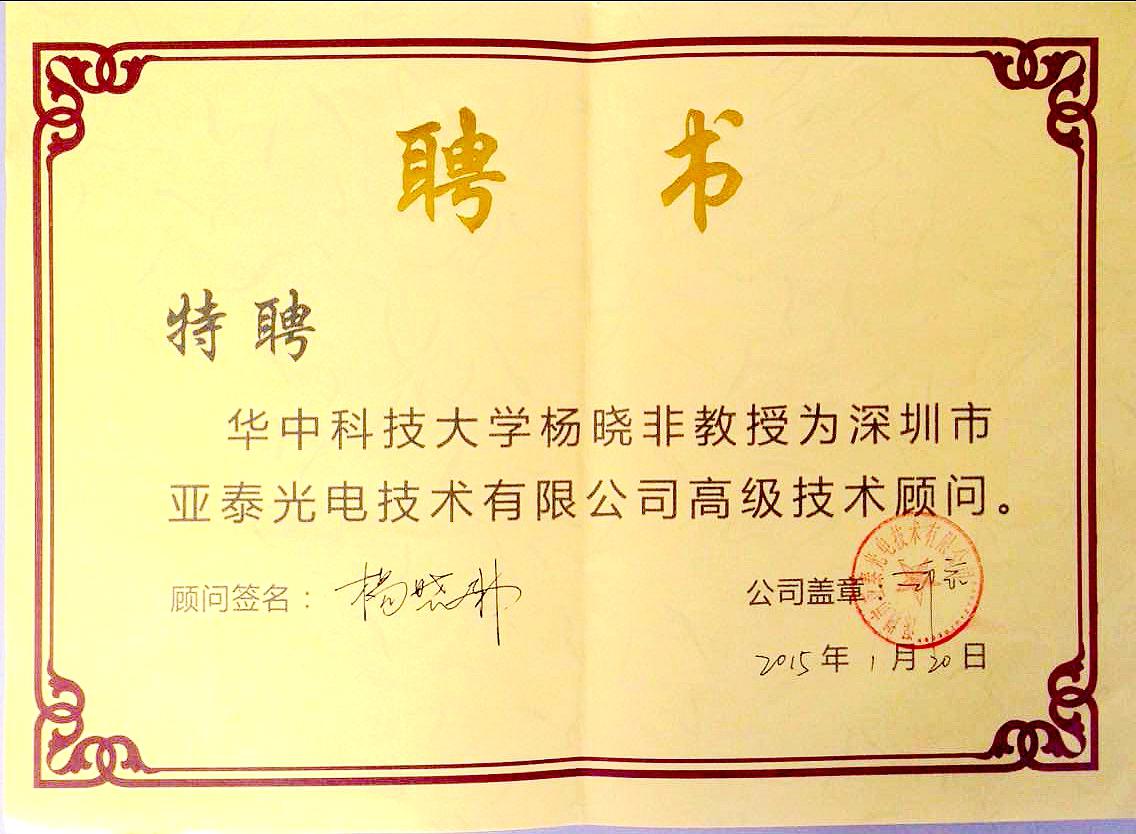 聘书
特聘
华中科技大学杨晓非教授为深圳市
亚泰光电技术有限公司高级技术顾问。
顾问签名：杨晓非
公司盖章：
2015年1月20日